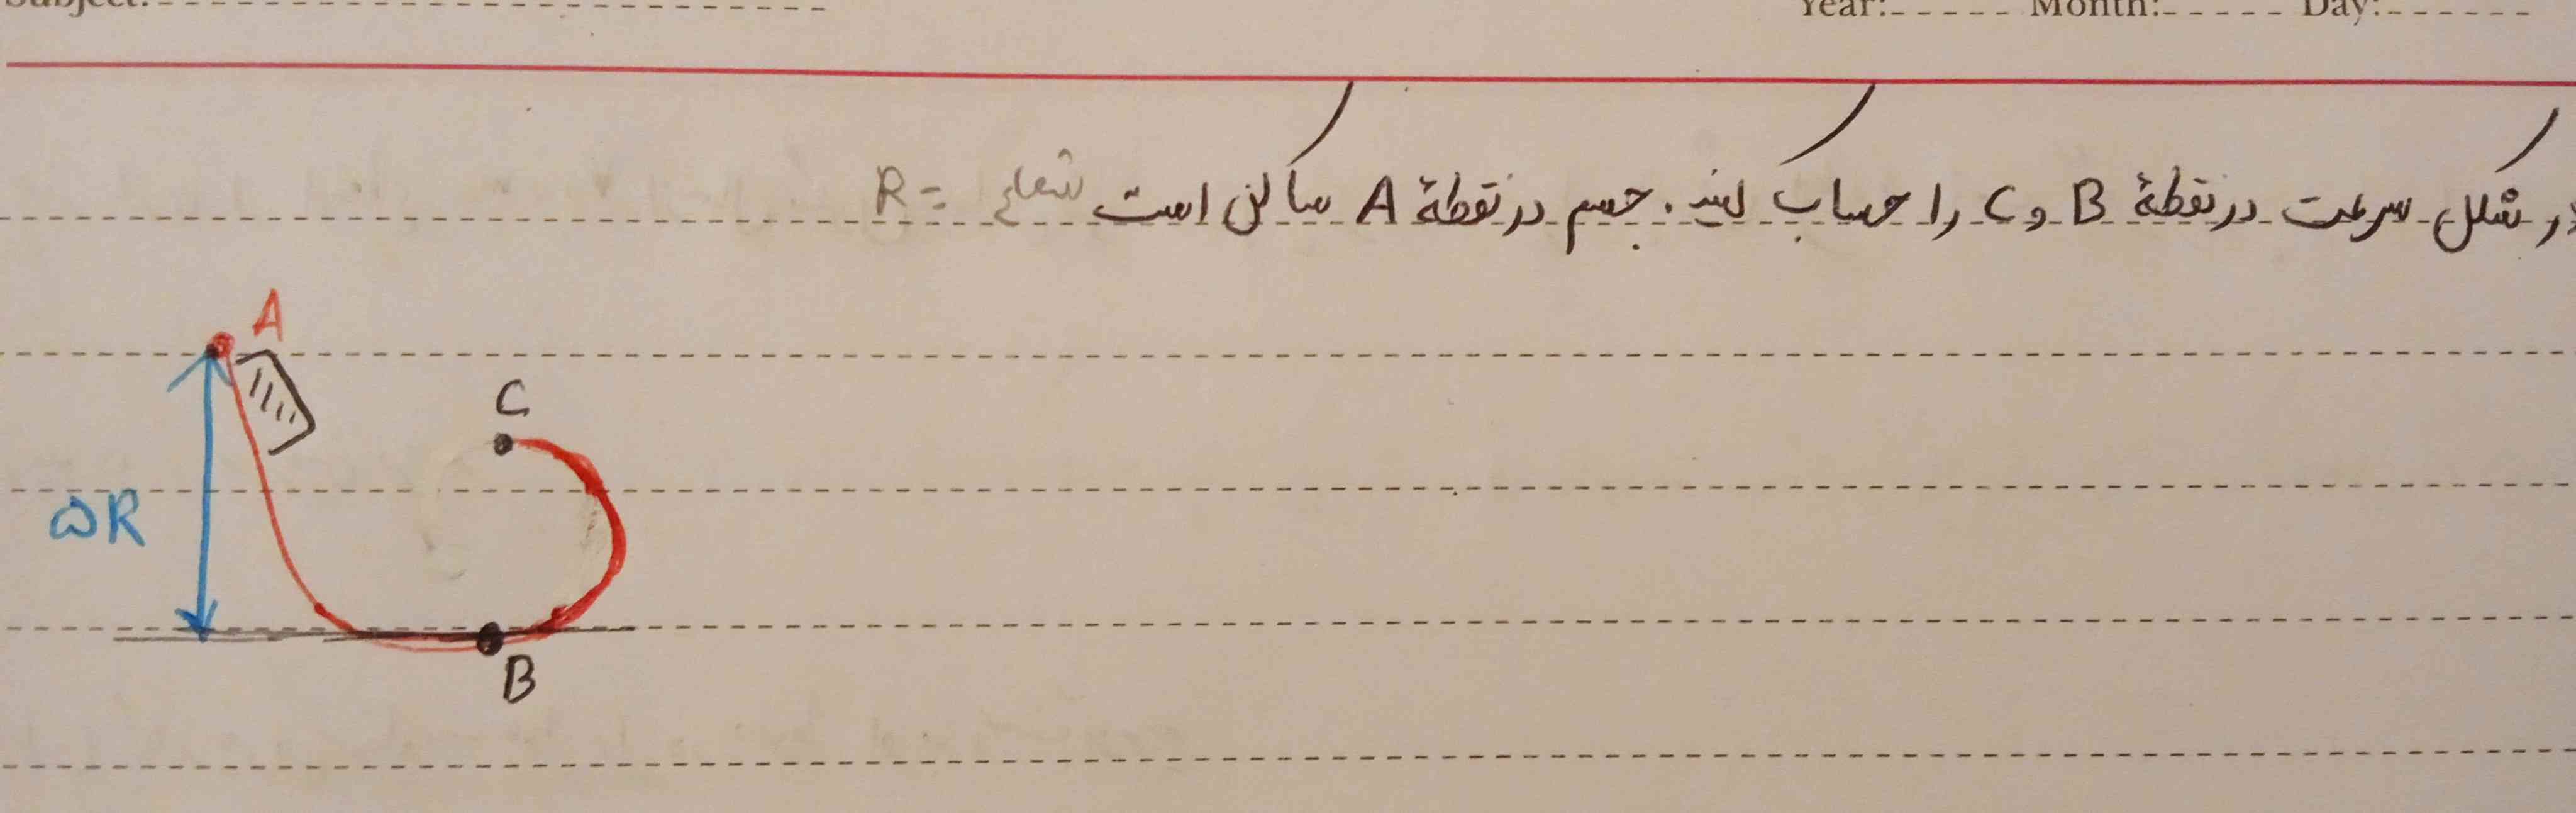 Subject: Year: Month: Day:
در شکل سرعت در نقطهٔ B و C را حساب کنید. جسم در نقطهٔ A ساکن است شعاع = R
A
C
۵R
B